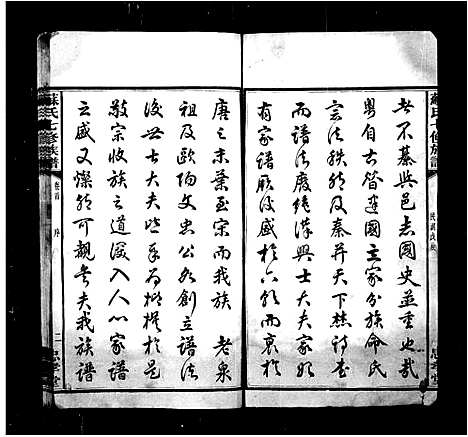 蘇氏七修族譜
者不綦與邑志國史並重也哉
粵自古昔建國立家分族命氏
宗法秩然及秦并天下焚詩書
而譜法廢繼漢興士大夫家始
有家譜厥後盛於六朝而衰於
唐之末葉至宋而我族老泉
祖及歐陽文忠公始創立譜法
後世士大夫皆奉為楷模於是
敬宗收族之道深入人心家譜
之盛又燦然可觀矣夫我族譜
蘇氏七修族譜
卷首 序 二 忠孝堂